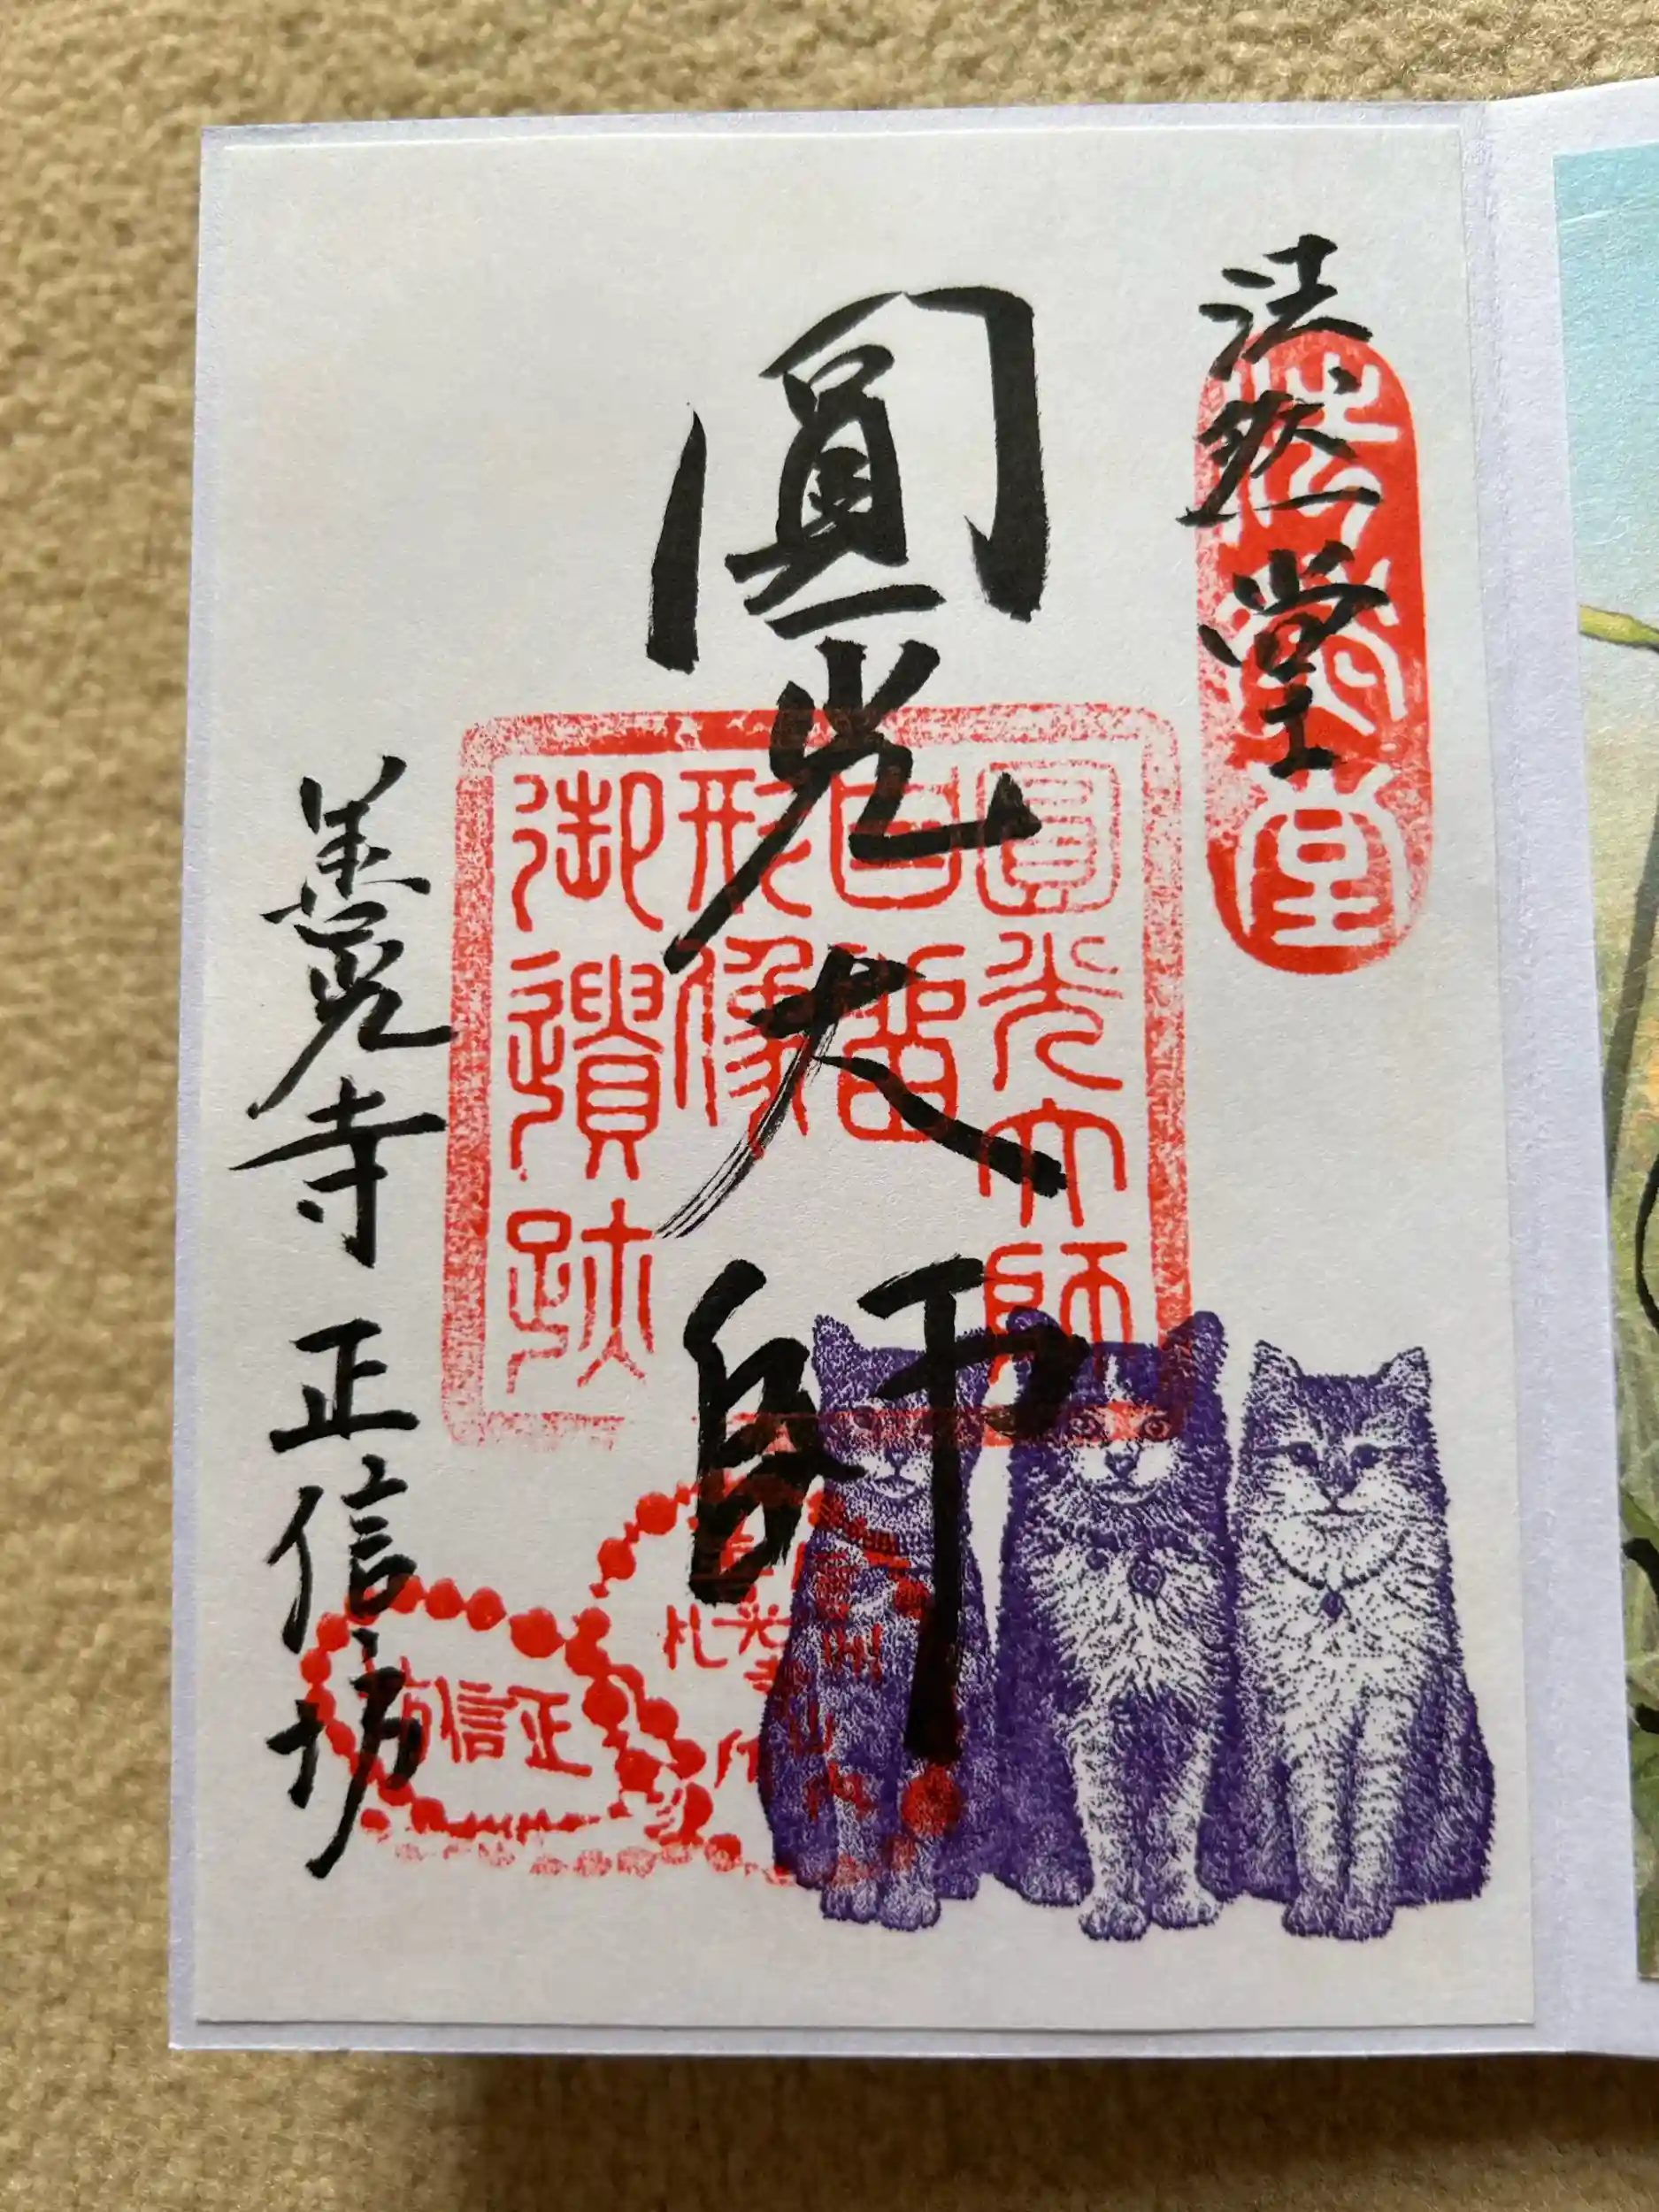 法然堂
法然堂
圓光大師
圓光大師
自畱
形像
御遺跡
善光寺 正信坊
正信坊